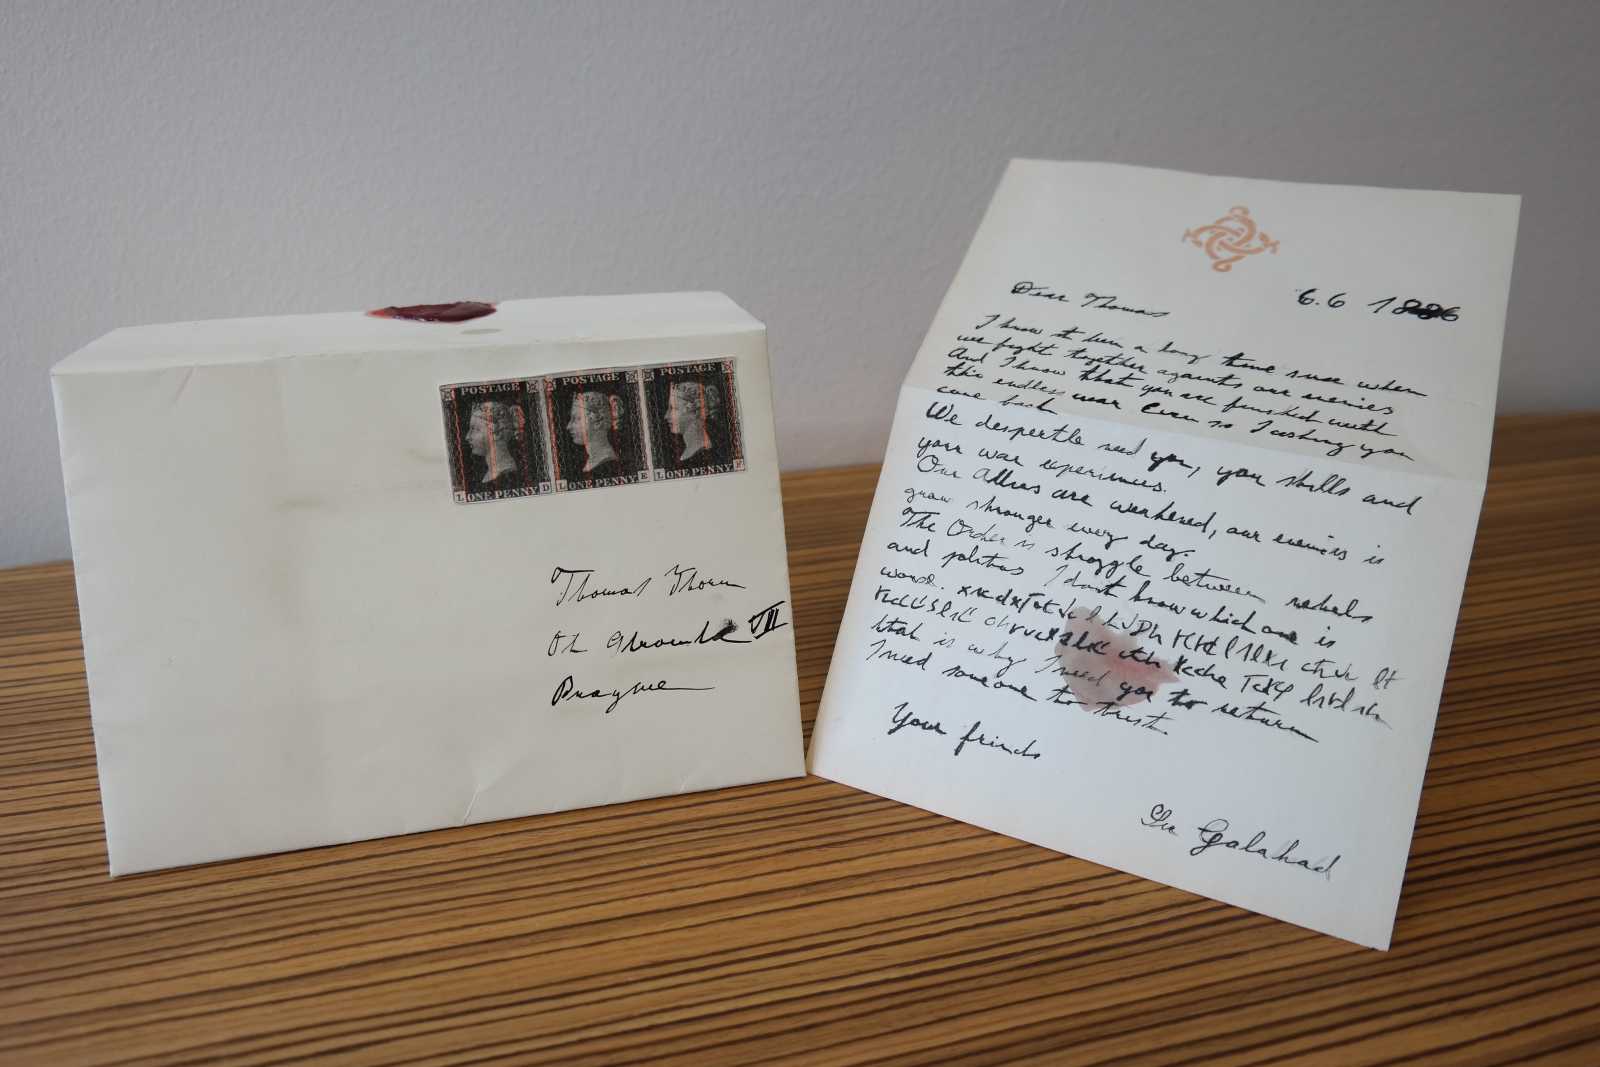 POSTAGE POSTAGE POSTAGE
L ONE PENNY D L ONE PENNY E L ONE PENNY F
Thomas
VII
Dear Thomas
6.6 1886
I know it been a long time since when
we fight together againts our enemies
And I know that you are finished with
this endless war Even so I asking you
come back
We despertle need you, your skills and
your war experiences.
Our Allies are weakened, our enemies is
grow stronger every day.
The Order is struggle between rebels
and politics I don't know which one is
worse.
that is why I need you to return
I need someone to trust.
Your friends
Sir Galahad